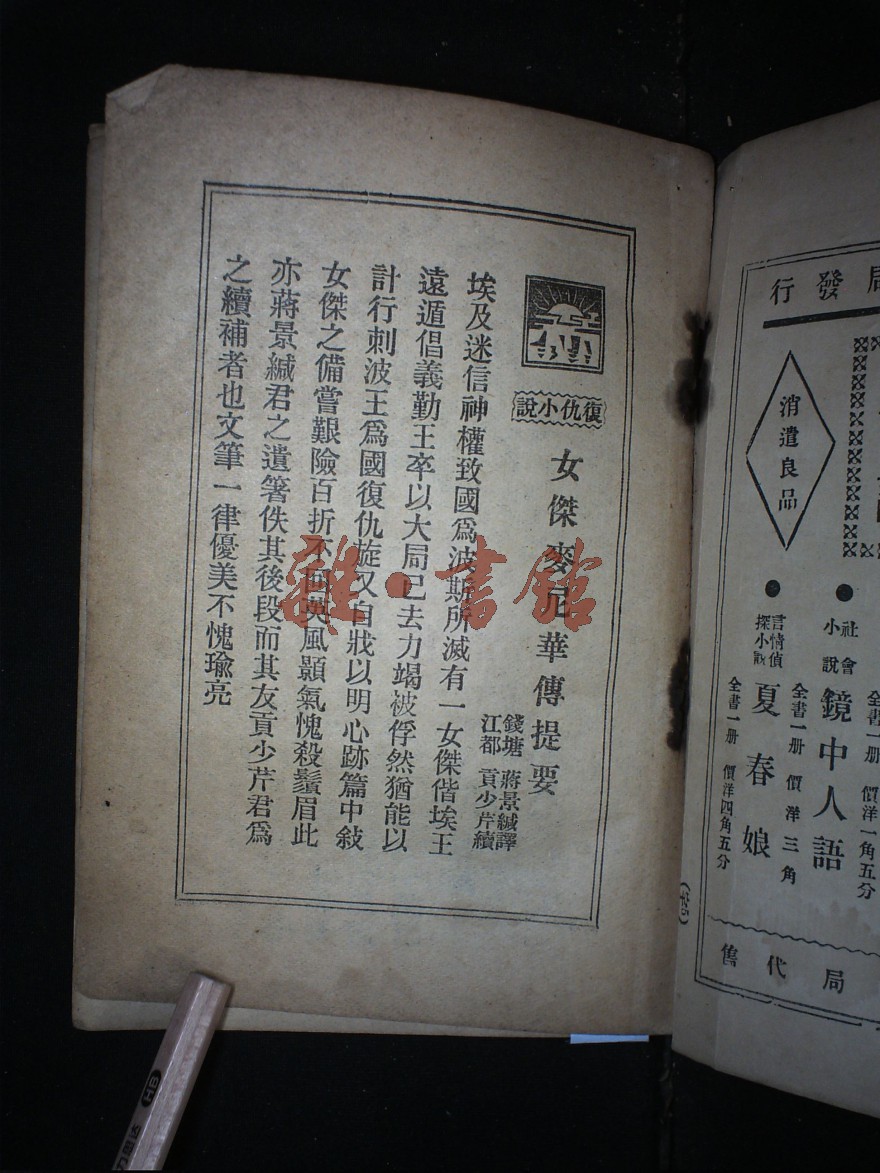 行發局
消遣良品
社會小說
鏡中人語
全書一册 價洋三角
全書一册 價洋一角五分
言情偵探小說
夏春娘
全書一册 價洋四角五分
售代局
復仇小說
女傑麥尼華傳提要
錢塘 蔣景緘譯
江都 貢少芹續
埃及迷信神權致國爲波斯所滅有一女傑偕埃王
遠遁倡義勤王卒以大局已去力竭被俘然猶能以
計行刺波王爲國復仇旋又自戕以明心跡篇中敍
女傑之備嘗艱險百折不回英風顥氣愧殺鬚眉此
亦蔣景緘君之遺箸佚其後段而其友貢少芹君爲
之續補者也文筆一律優美不愧瑜亮
雜·書館
HB